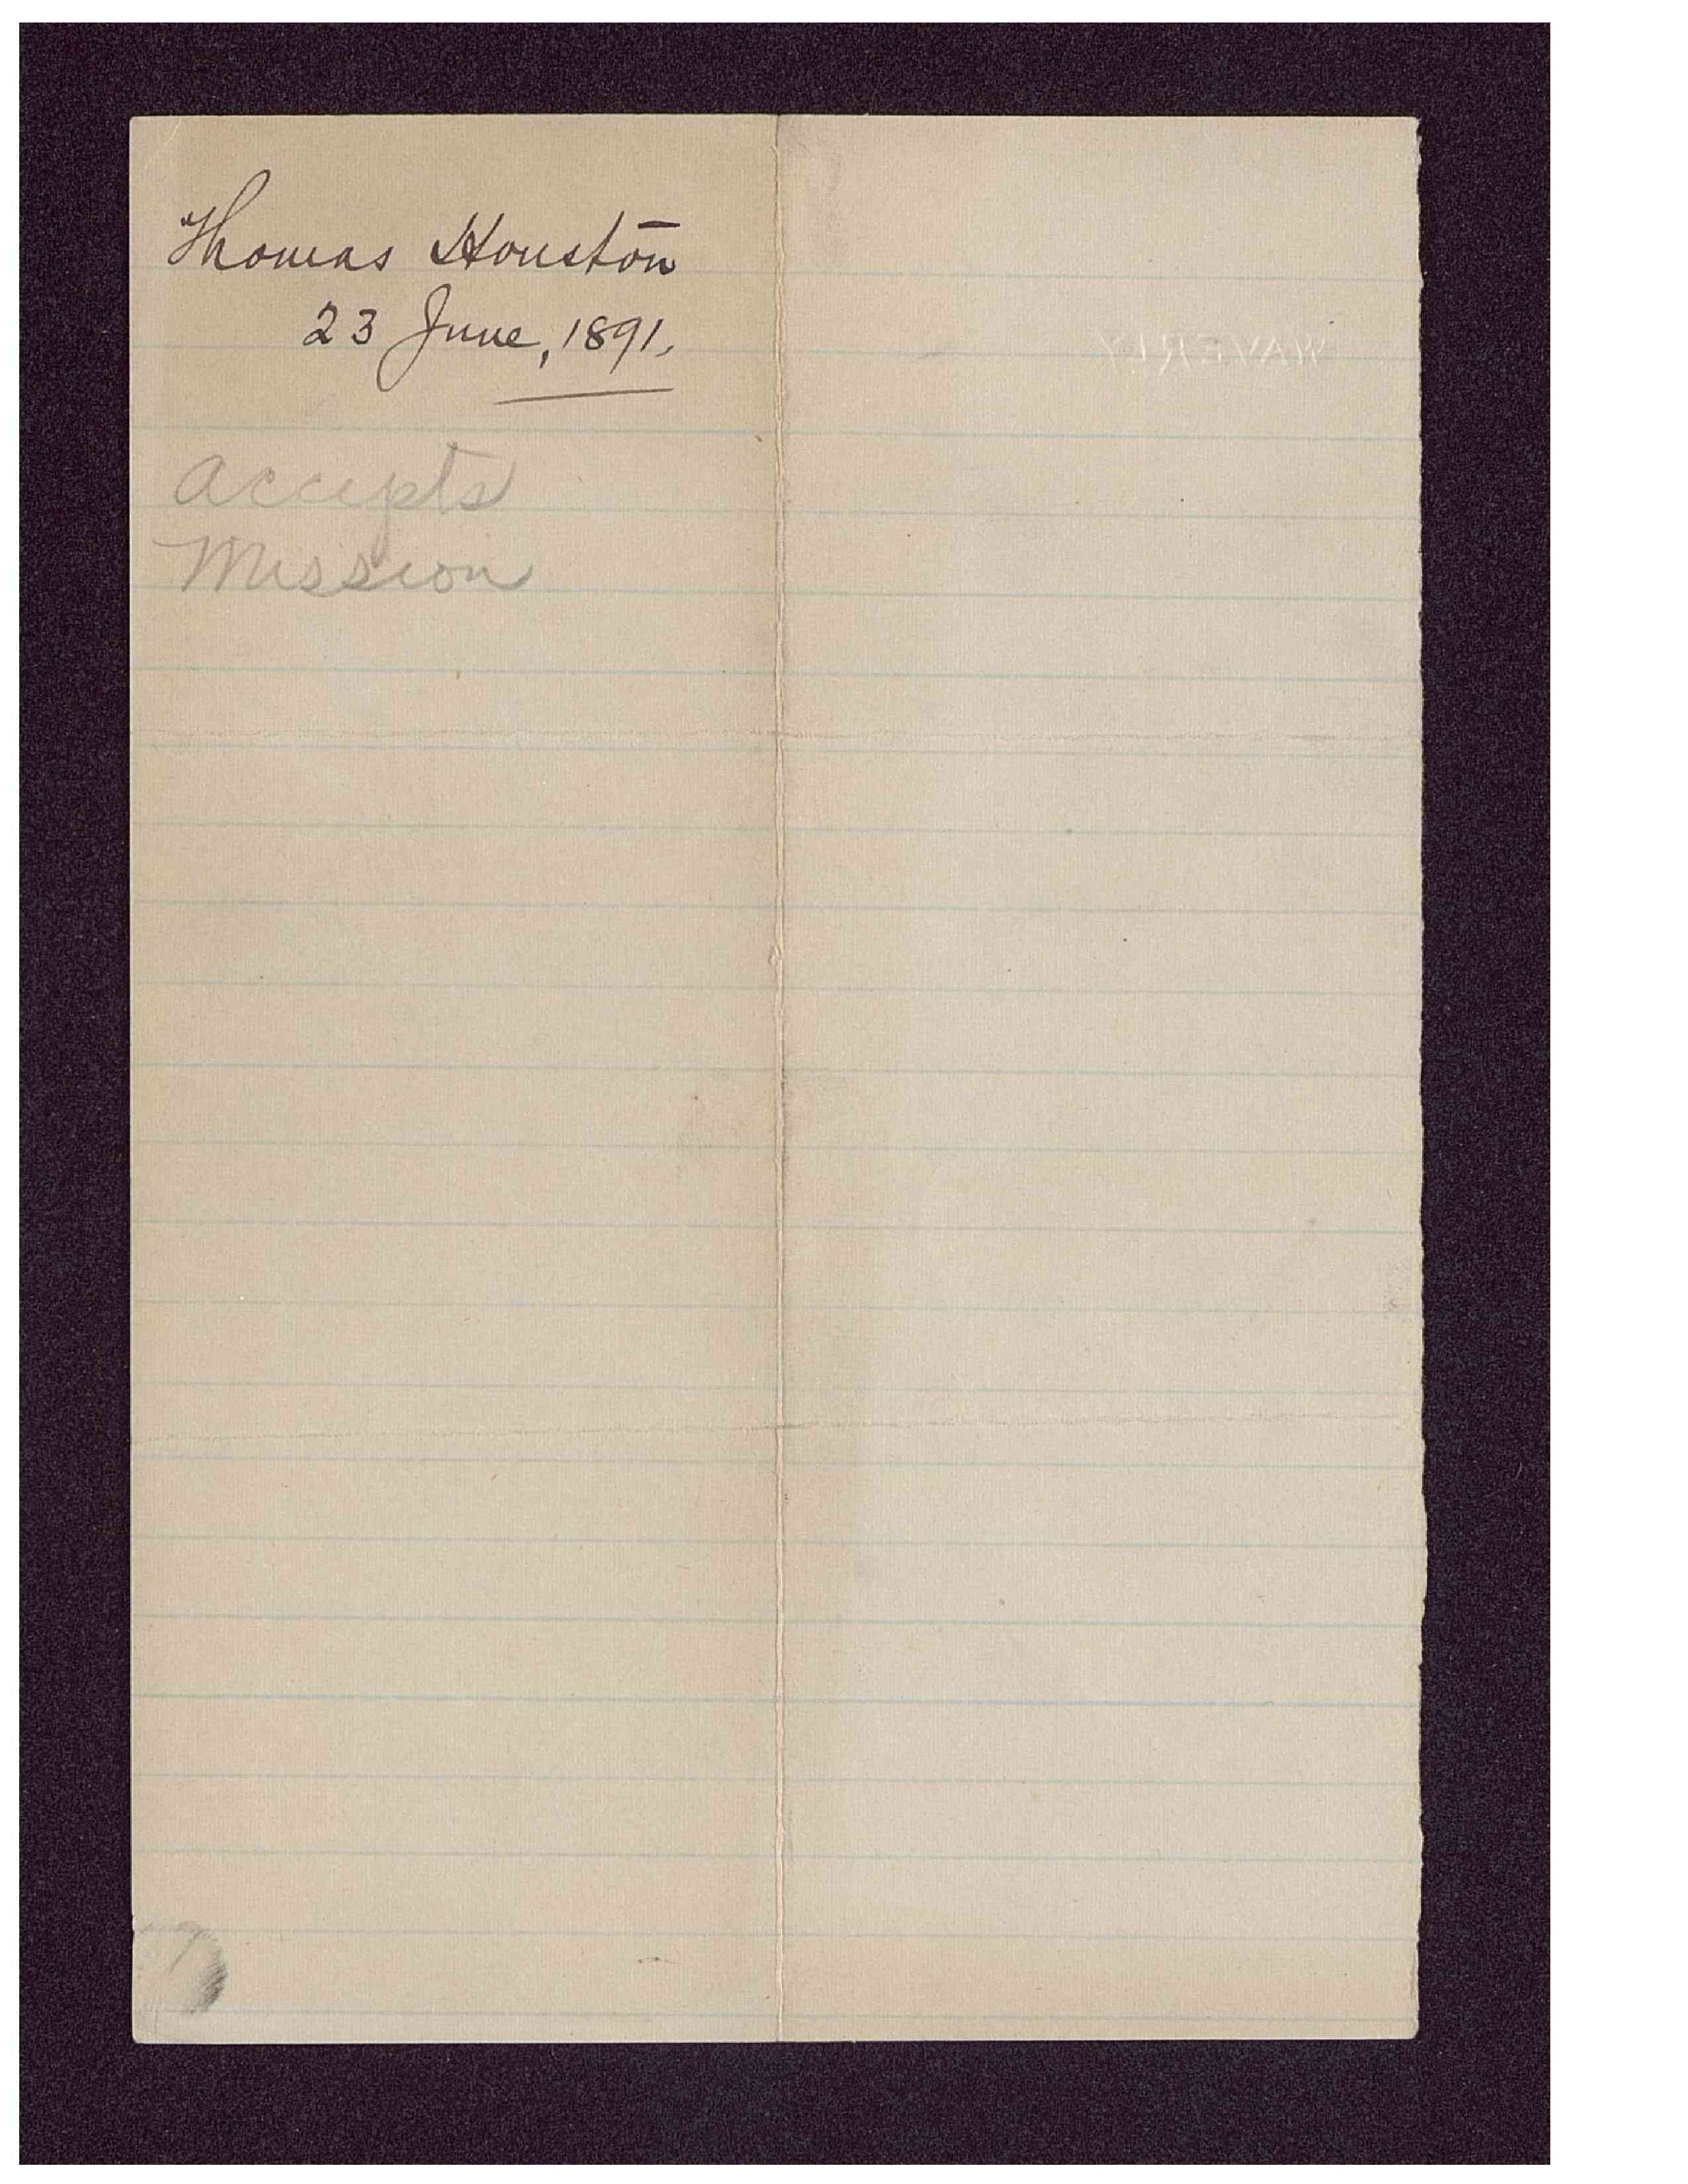 Thomas Houston
23 June, 1891.
accepts
Mission
WAVERLY